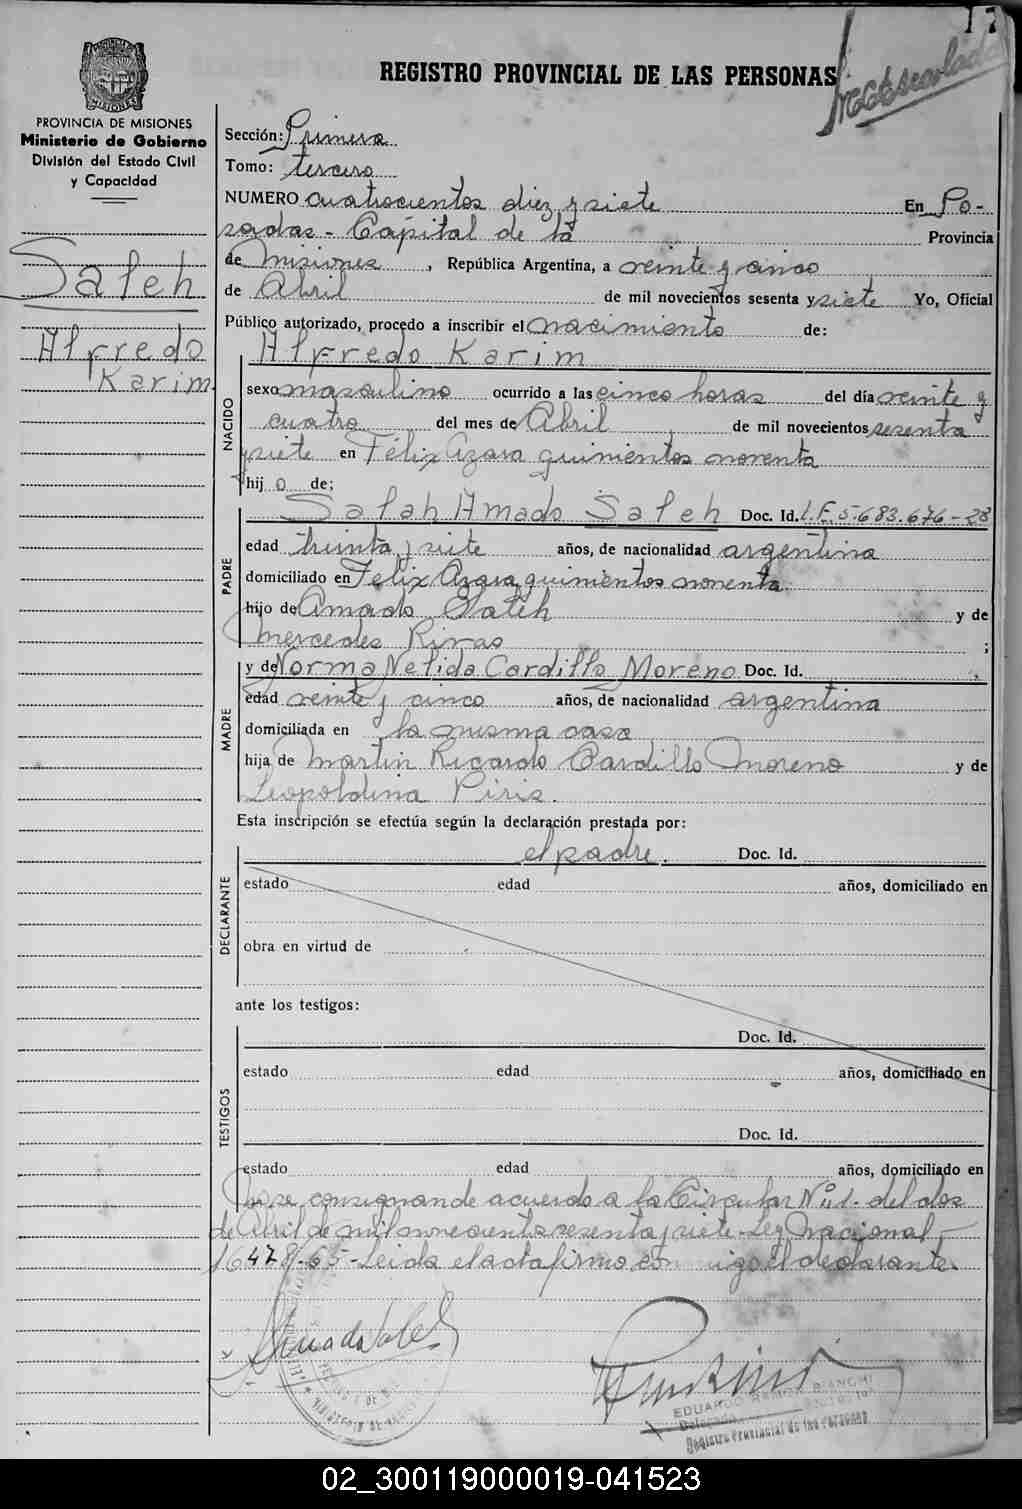 17
REGISTRO PROVINCIAL DE LAS PERSONAS
PROVINCIA DE MISIONES
Ministerio de Gobierno
División del Estado Civil
y Capacidad
Saleh
Alfredo
Karim
Sección: Primera
Tomo: tercero
NUMERO cuatrocientos diez y siete En Po-
sadas - Capital de la Provincia
de Misiones, República Argentina, a veinte y cinco
de Abril de mil novecientos sesenta y siete Yo, Oficial
Público autorizado, procedo a inscribir el nacimiento de:
Alfredo Karim
NACIDO
sexo masculino ocurrido a las cinco horas del día veinte y
cuatro del mes de Abril de mil novecientos sesenta
y siete en Félix Azara quinientos noventa
hij o de;
Salah Amado Saleh Doc. Id. I.E. 5.683.676-28
PADRE
edad treinta y siete años, de nacionalidad argentina
domiciliado en Felix Azara quinientos noventa
hijo de Amado Saleh y de
Mercedes Rivas ;
y de Norma Nelida Cardillo Moreno Doc. Id.
MADRE
edad veinte y cinco años, de nacionalidad argentina
domiciliada en la misma casa
hija de Martin Ricardo Cardillo Moreno y de
Leopoldina Piris.
Esta inscripción se efectúa según la declaración prestada por:
el padre. Doc. Id.
DECLARANTE
estado edad años, domiciliado en
obra en virtud de
ante los testigos:
Doc. Id.
TESTIGOS
estado edad años, domiciliado en
Doc. Id.
estado edad años, domiciliado en
No se consignan de acuerdo a la Circular Nº 1. del dos
de Abril de mil novecientos sesenta y siete - Ley Nacional
16478/65 - Leida el acta firma conmigo el declarante.
EDUARDO RAMON BIANCHI
Delegado
Registro Provincial de las Personas
02_300119000019-041523